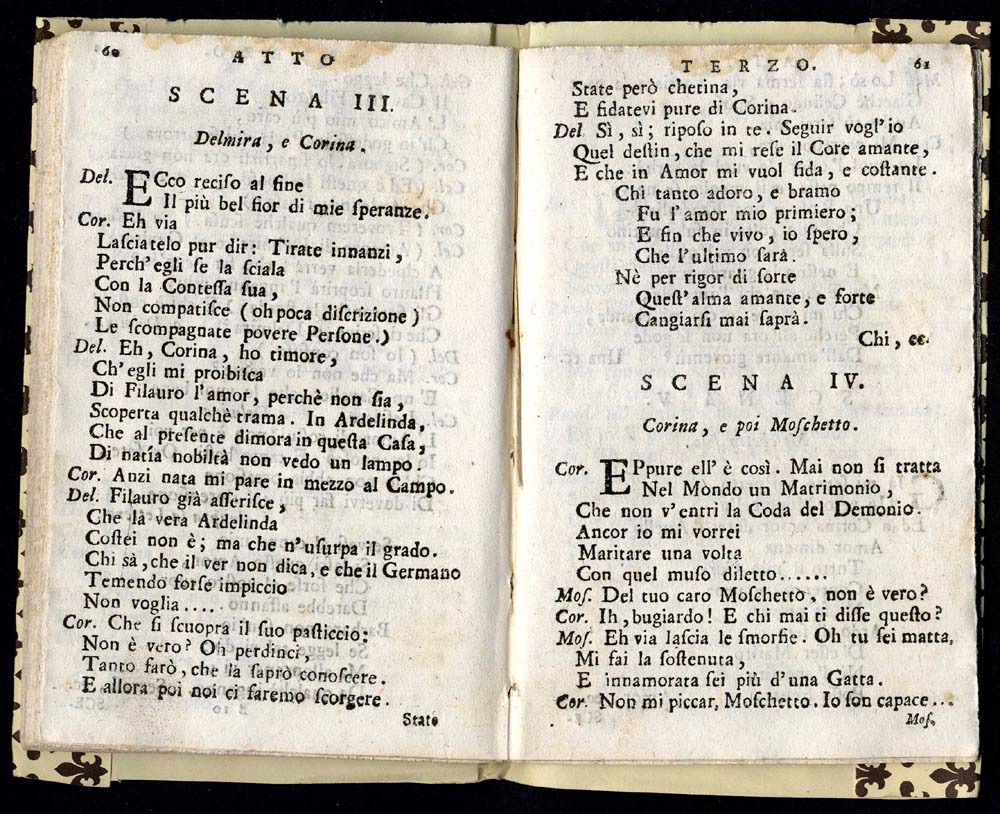 60
ATTO
SCENA III.
Delmira, e Corina.
Del. ECco reciſo al fine
Il più bel fior di mie ſperanze.
Cor. Eh via
Laſciatelo pur dir: Tirate innanzi,
Perch'egli ſe la sciala
Con la Conteſſa ſua,
Non compatiſce (oh poca diſcrizione)
Le ſcompagnate povere Perſone.)
Del. Eh, Corina, ho timore,
Ch'egli mi proibiſca
Di Filauro l'amor, perchè non ſia,
Scoperta qualchè trama. In Ardelinda,
Che al preſente dimora in queſta Caſa,
Di natía nobiltà non vedo un lampo.
Cor. Anzi nata mi pare in mezzo al Campo.
Del. Filauro già aſſeriſce,
Che la vera Ardelinda
Coſtei non è; ma che n'uſurpa il grado.
Chi sà, che il ver non dica, e che il Germano
Temendo forſe impiccio
Non voglia....
Cor. Che ſi ſcuopra il ſuo paſticcio;
Non è vero? Oh perdinci,
Tanto farò, che la saprò conoſcere.
E allora poi noi ci faremo ſcorgere.
State
TERZO.
61
State però chetina,
E fidatevi pure di Corina.
Del Sì, sì; ripoſo in te. Seguir vogl'io
Quel deſtin, che mi reſe il Core amante,
E che in Amor mi vuol fida, e coſtante.
Chi tanto adoro, e bramo
Fu l'amor mio primiero;
E fin che vivo, io ſpero,
Che l'ultimo ſarà.
Nè per rigor di ſorte
Queſt'alma amante, e forte
Cangiarſi mai ſaprà.
Chi, ec.
SCENA IV.
Corina, e poi Moſchetto.
Cor. EPpure ell'è così. Mai non ſi tratta
Nel Mondo un Matrimonio,
Che non v'entri la Coda del Demonio.
Ancor io mi vorrei
Maritare una volta
Con quel muſo diletto......
Moſ. Del tuo caro Moſchetto, non è vero?
Cor. Ih, bugiardo! E chi mai ti diſſe queſto?
Moſ. Eh via laſcia le ſmorfie. Oh tu ſei matta,
Mi fai la ſoſtenuta,
E innamorata ſei più d'una Gatta.
Cor. Non mi piccar, Moſchetto. Io ſon capace...
Moſ.